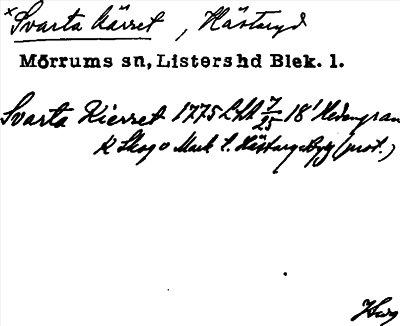 × Svarta kärret, Hästaryd
Mörrums sn, Listers hd Blek. l.
Svarta Kierret 1775 LSA 7/25 18' Hedengran
K Skog o Mark t. Hästaryd (prot.)